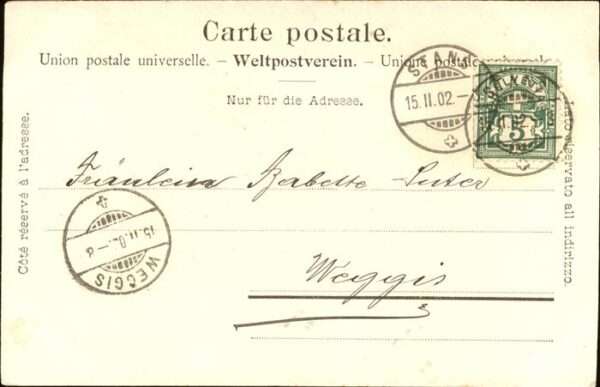 Carte postale.
Union postale universelle. – Weltpostverein. – Unione postale universale.
Nur für die Adresse.
Côté réservé à l'adresse.
Lato riservato all indirizzo.
STANS
15.II.02.–
HELVETIA
5
Fräulein Babette Suter
Weggis
15.II.02.–8
WEGGIS